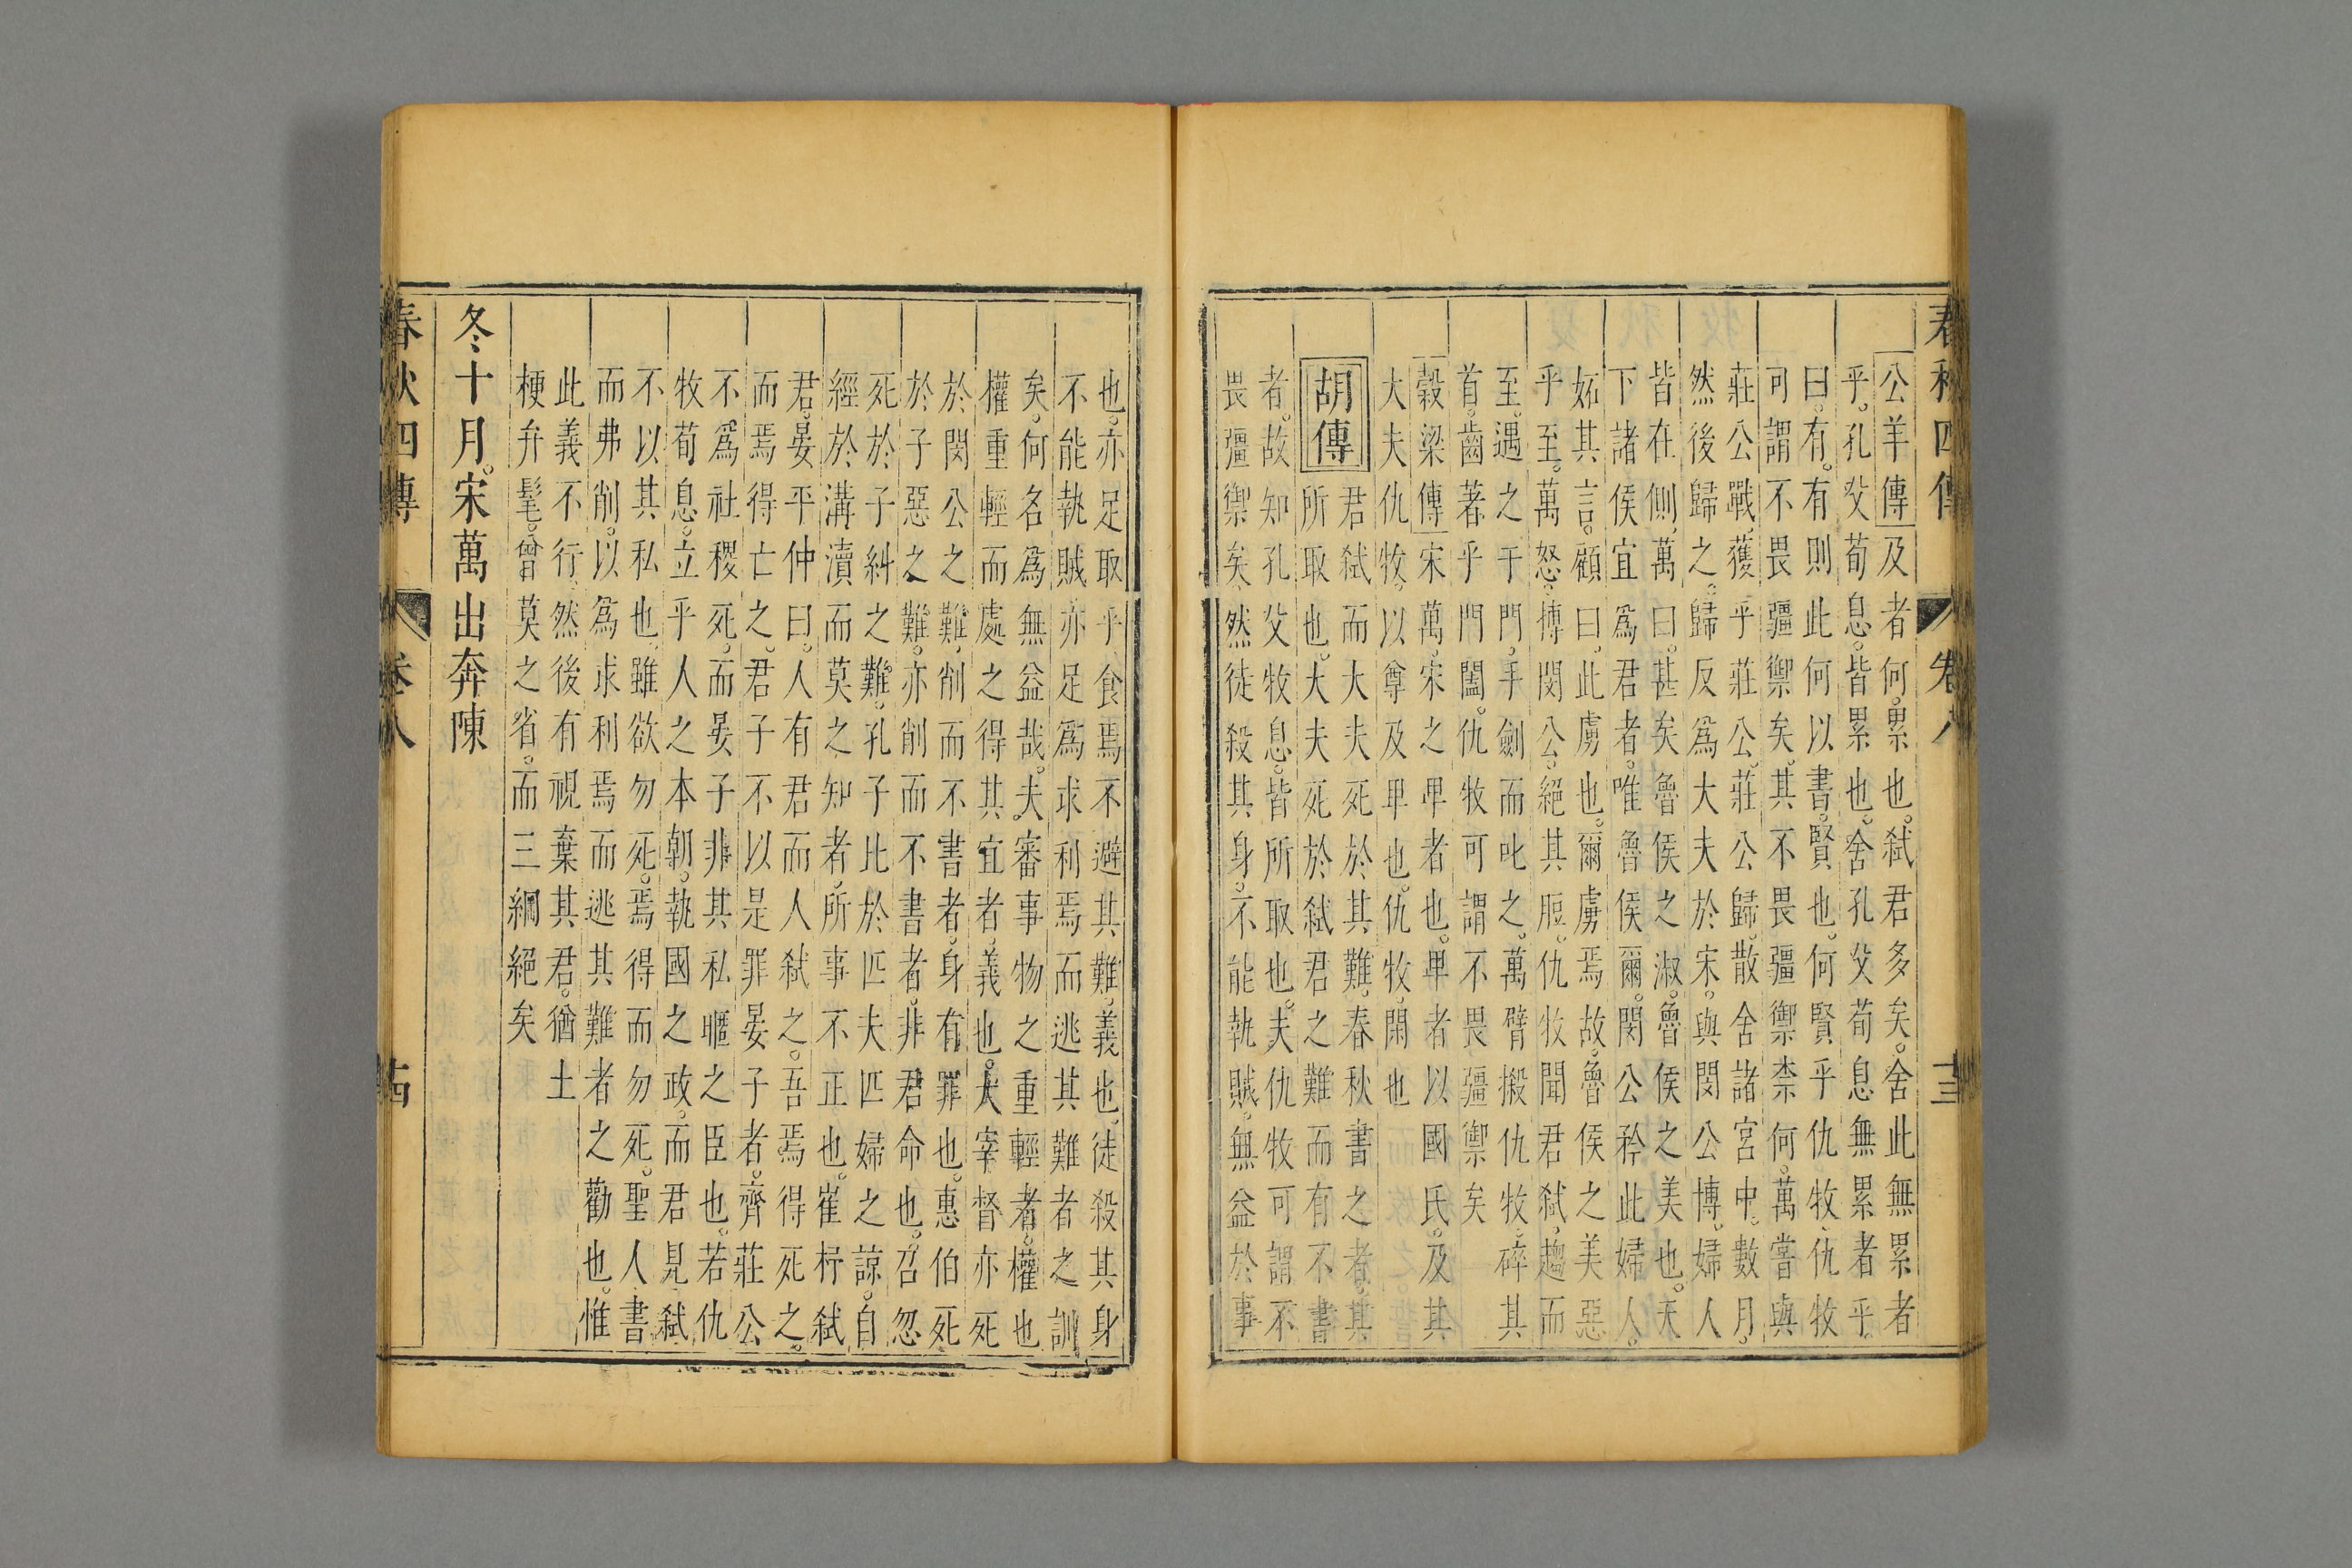 春秋四傳 卷八 十三
公羊傳及者何。累也。弒君多矣。舍此無累者
乎。孔父荀息。皆累也。舍孔父荀息無累者乎
曰。有。有則此何以書。賢也。何賢乎仇牧。仇牧
可謂不畏彊禦矣。其不畏彊禦柰何。萬嘗與
莊公戰。獲乎莊公。莊公歸。散舍諸宮中。數月。
然後歸之。歸反爲大夫於宋。與閔公博。婦人
皆在側。萬曰。甚矣魯侯之淑。魯侯之美也。天
下諸侯宜爲君者。唯魯侯爾。閔公矜此婦人。
妬其言。顧曰。此虜也。爾虜焉故。魯侯之美惡
乎至。萬怒。搏閔公。絕其脰。仇牧聞君弒。趨而
至。遇之于門。手劍而叱之。萬臂摋仇牧。碎其
首。齒著乎門闔。仇牧可謂不畏彊禦矣
穀梁傳宋萬。宋之卑者也。卑者以國氏。及其
大夫仇牧。以尊及卑也。仇牧。閑也
胡傳
君弒而大夫死於其難。春秋書之者。其
所取也。大夫死於弒君之難而有不書
者。故知孔父牧息。皆所取也。夫仇牧可謂不
畏彊禦矣。然徒殺其身。不能執賊。無益於事
也。亦足取乎。食焉不避其難。義也。徒殺其身
不能執賊。亦足爲求利焉而逃其難者之訓
矣。何名爲無益哉。夫審事物之重輕者。權也
權重輕而處之得其宜者。義也。大宰督亦死
於閔公之難。削而不書者。身有罪也。惠伯死
於子惡之難。亦削而不書者。非君命也。召忽
死於子糾之難。孔子比於匹夫匹婦之諒。自
經於溝瀆而莫之知者。所事不正也。崔杼弒
君。晏平仲曰。人有君而人弒之。吾焉得死之。
而焉得亡之。君子不以是罪晏子者。齊莊公
不爲社稷死。而晏子非其私暱之臣也。若仇
牧荀息。立乎人之本朝。執國之政。而君見弒
不以其私也。雖欲勿死。焉得而勿死。聖人書
而弗削。以爲求利焉而逃其難者之勸也。惟
此義不行。然後有視棄其君。猶土
梗弁髦。曾莫之省。而三綱絕矣
冬十月。宋萬出奔陳
春秋四傳 卷八 十四